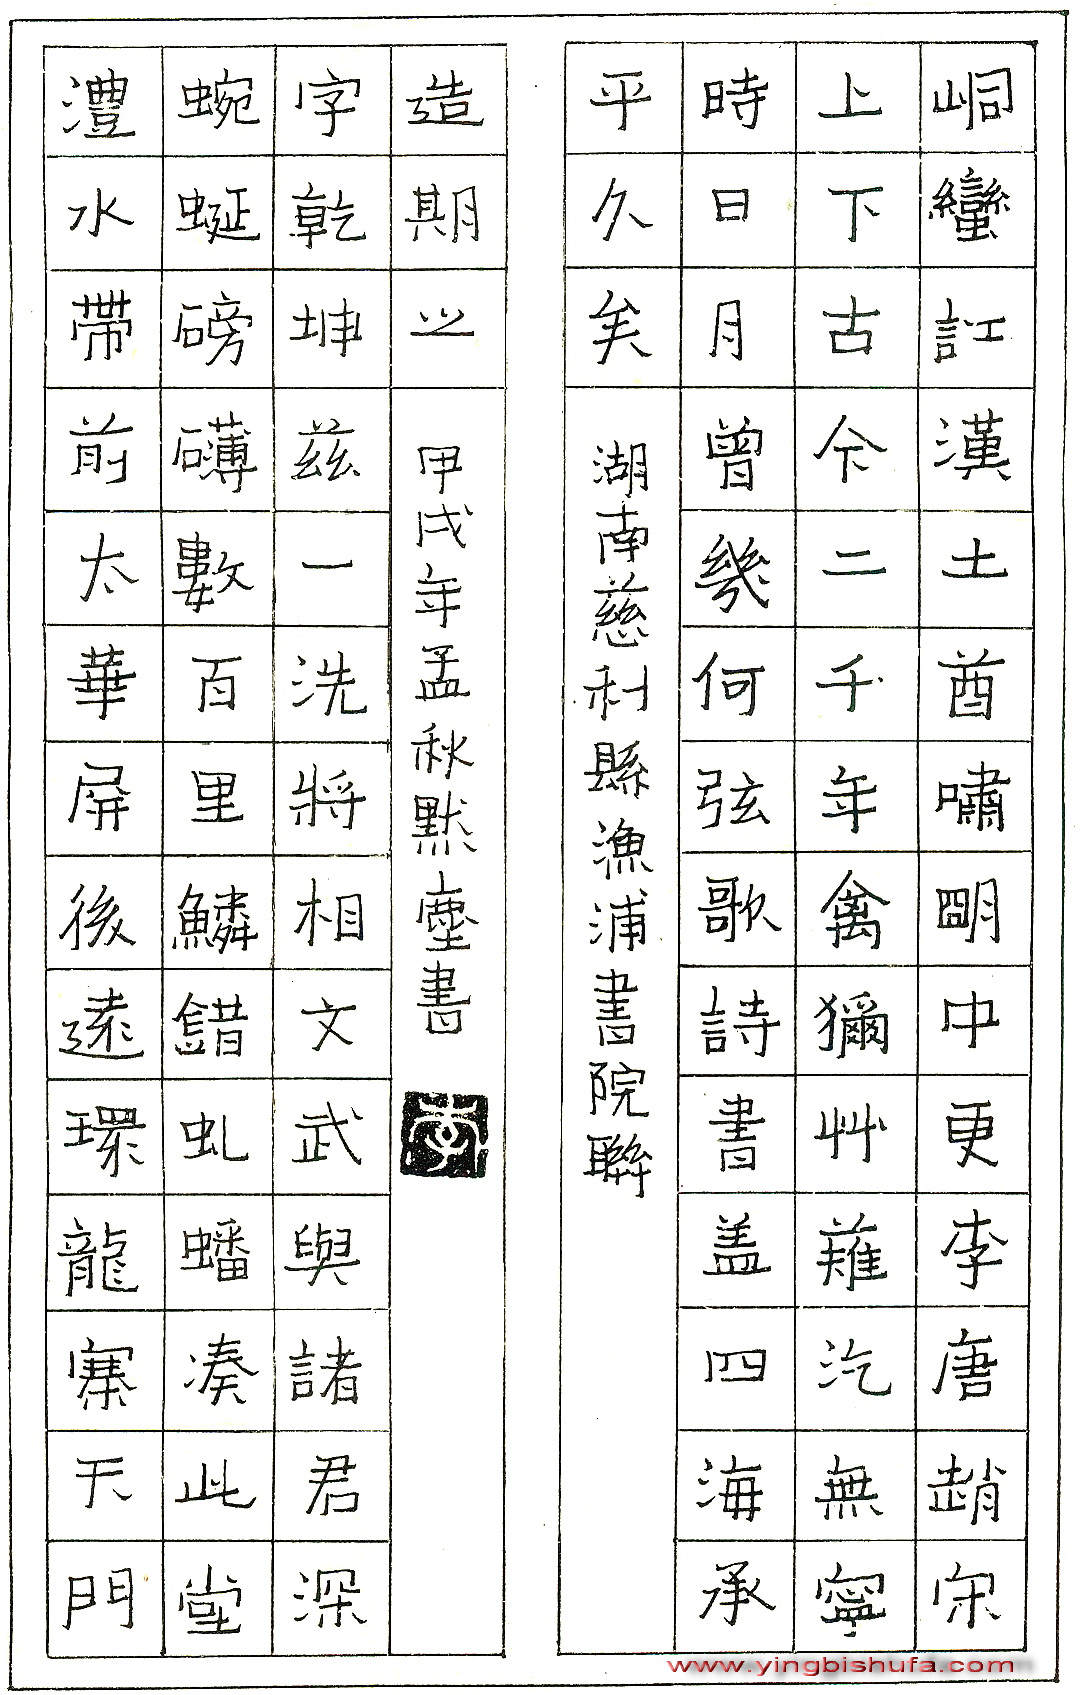 峒蠻訌漢土酋嘯明中更李唐趙宋
上下古今二千年禽獮艸薙汔無寧
時日月曾幾何弦歌詩書蓋四海承
平久矣
湖南慈利縣漁浦書院聯
澧水帶前太華屏後遠環龍寨天門
蜿蜒磅礴數百里鱗錯虬蟠湊此堂
字乾坤茲一洗將相文武與諸君深
造期之
甲戌年孟秋默塵書
www.yingbishufa.com